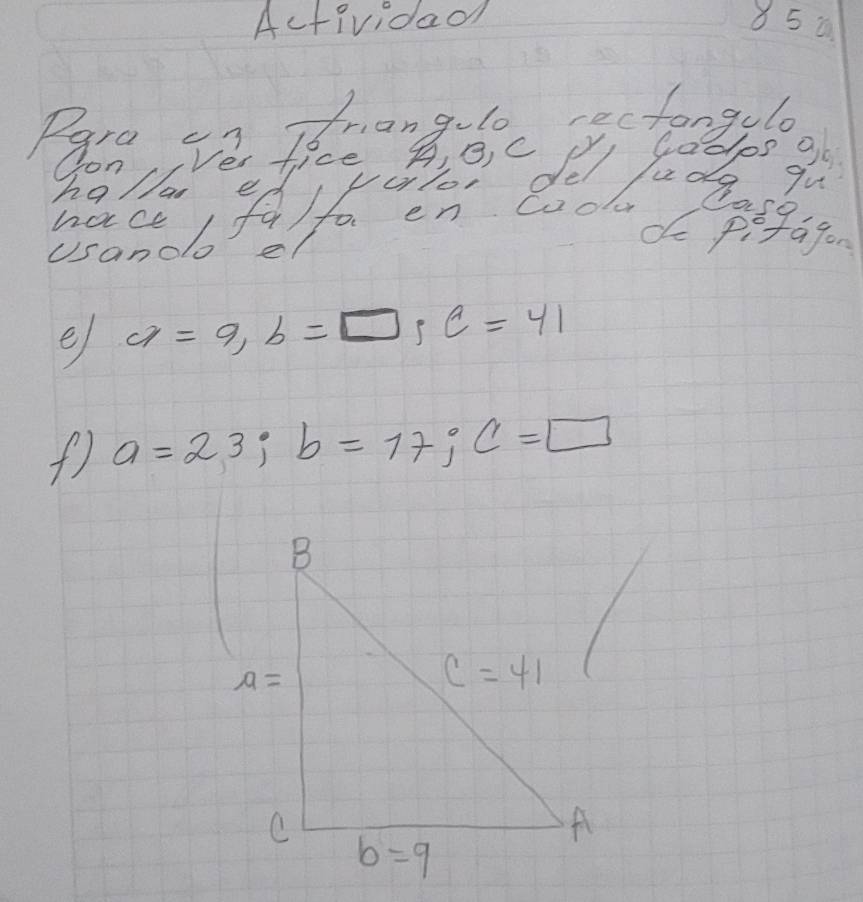 Actividad 85
Para un triangulo rectangulo
Con Vertice A, B, C y, Lados a,b,
hallar el valor del lado qu
hace falta en Cada Caso
Usando el de Pitágor
e) a = 9, b = □; C = 41
f) a = 23; b = 17; C = □
B
a= C = 41
C A
b=9